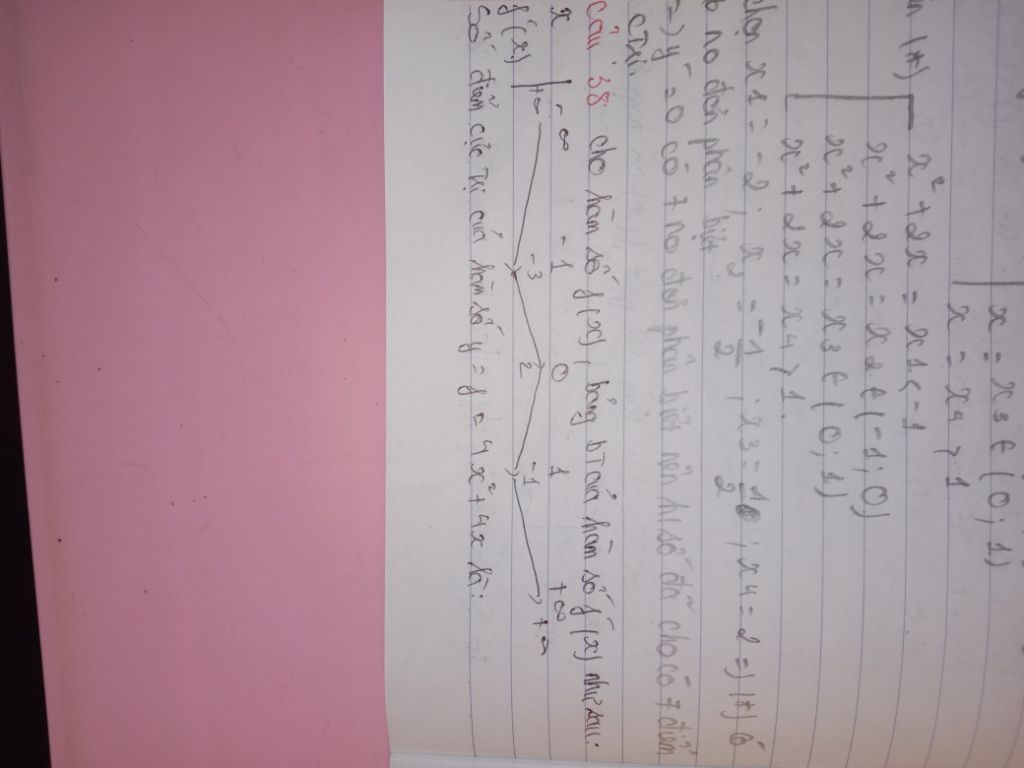 x = x3 ∈ (0; 1)
x = x4 > 1
(*) x² + 2x = x1 < -1
x² + 2x = x2 ∈ (-1; 0)
x² + 2x = x3 ∈ (0; 1)
x² + 2x = x4 > 1
chọn x1 = -2; x2 = -1/2; x3 = 1/2; x4 = 2 => (*) có
6 no đơn phân biệt
=> y' = 0 có 7 no đơn phân biệt nên h/số đã cho có 7 điểm
CTRị.
Câu 38 cho hàm số f(x), bảng bT của hàm số f'(x) như sau:
x -∞ -1 0 1 +∞
f'(x) +∞ -3 2 -1 +∞
Số điểm cực trị của hàm số y = f = 4x² + 4x là: